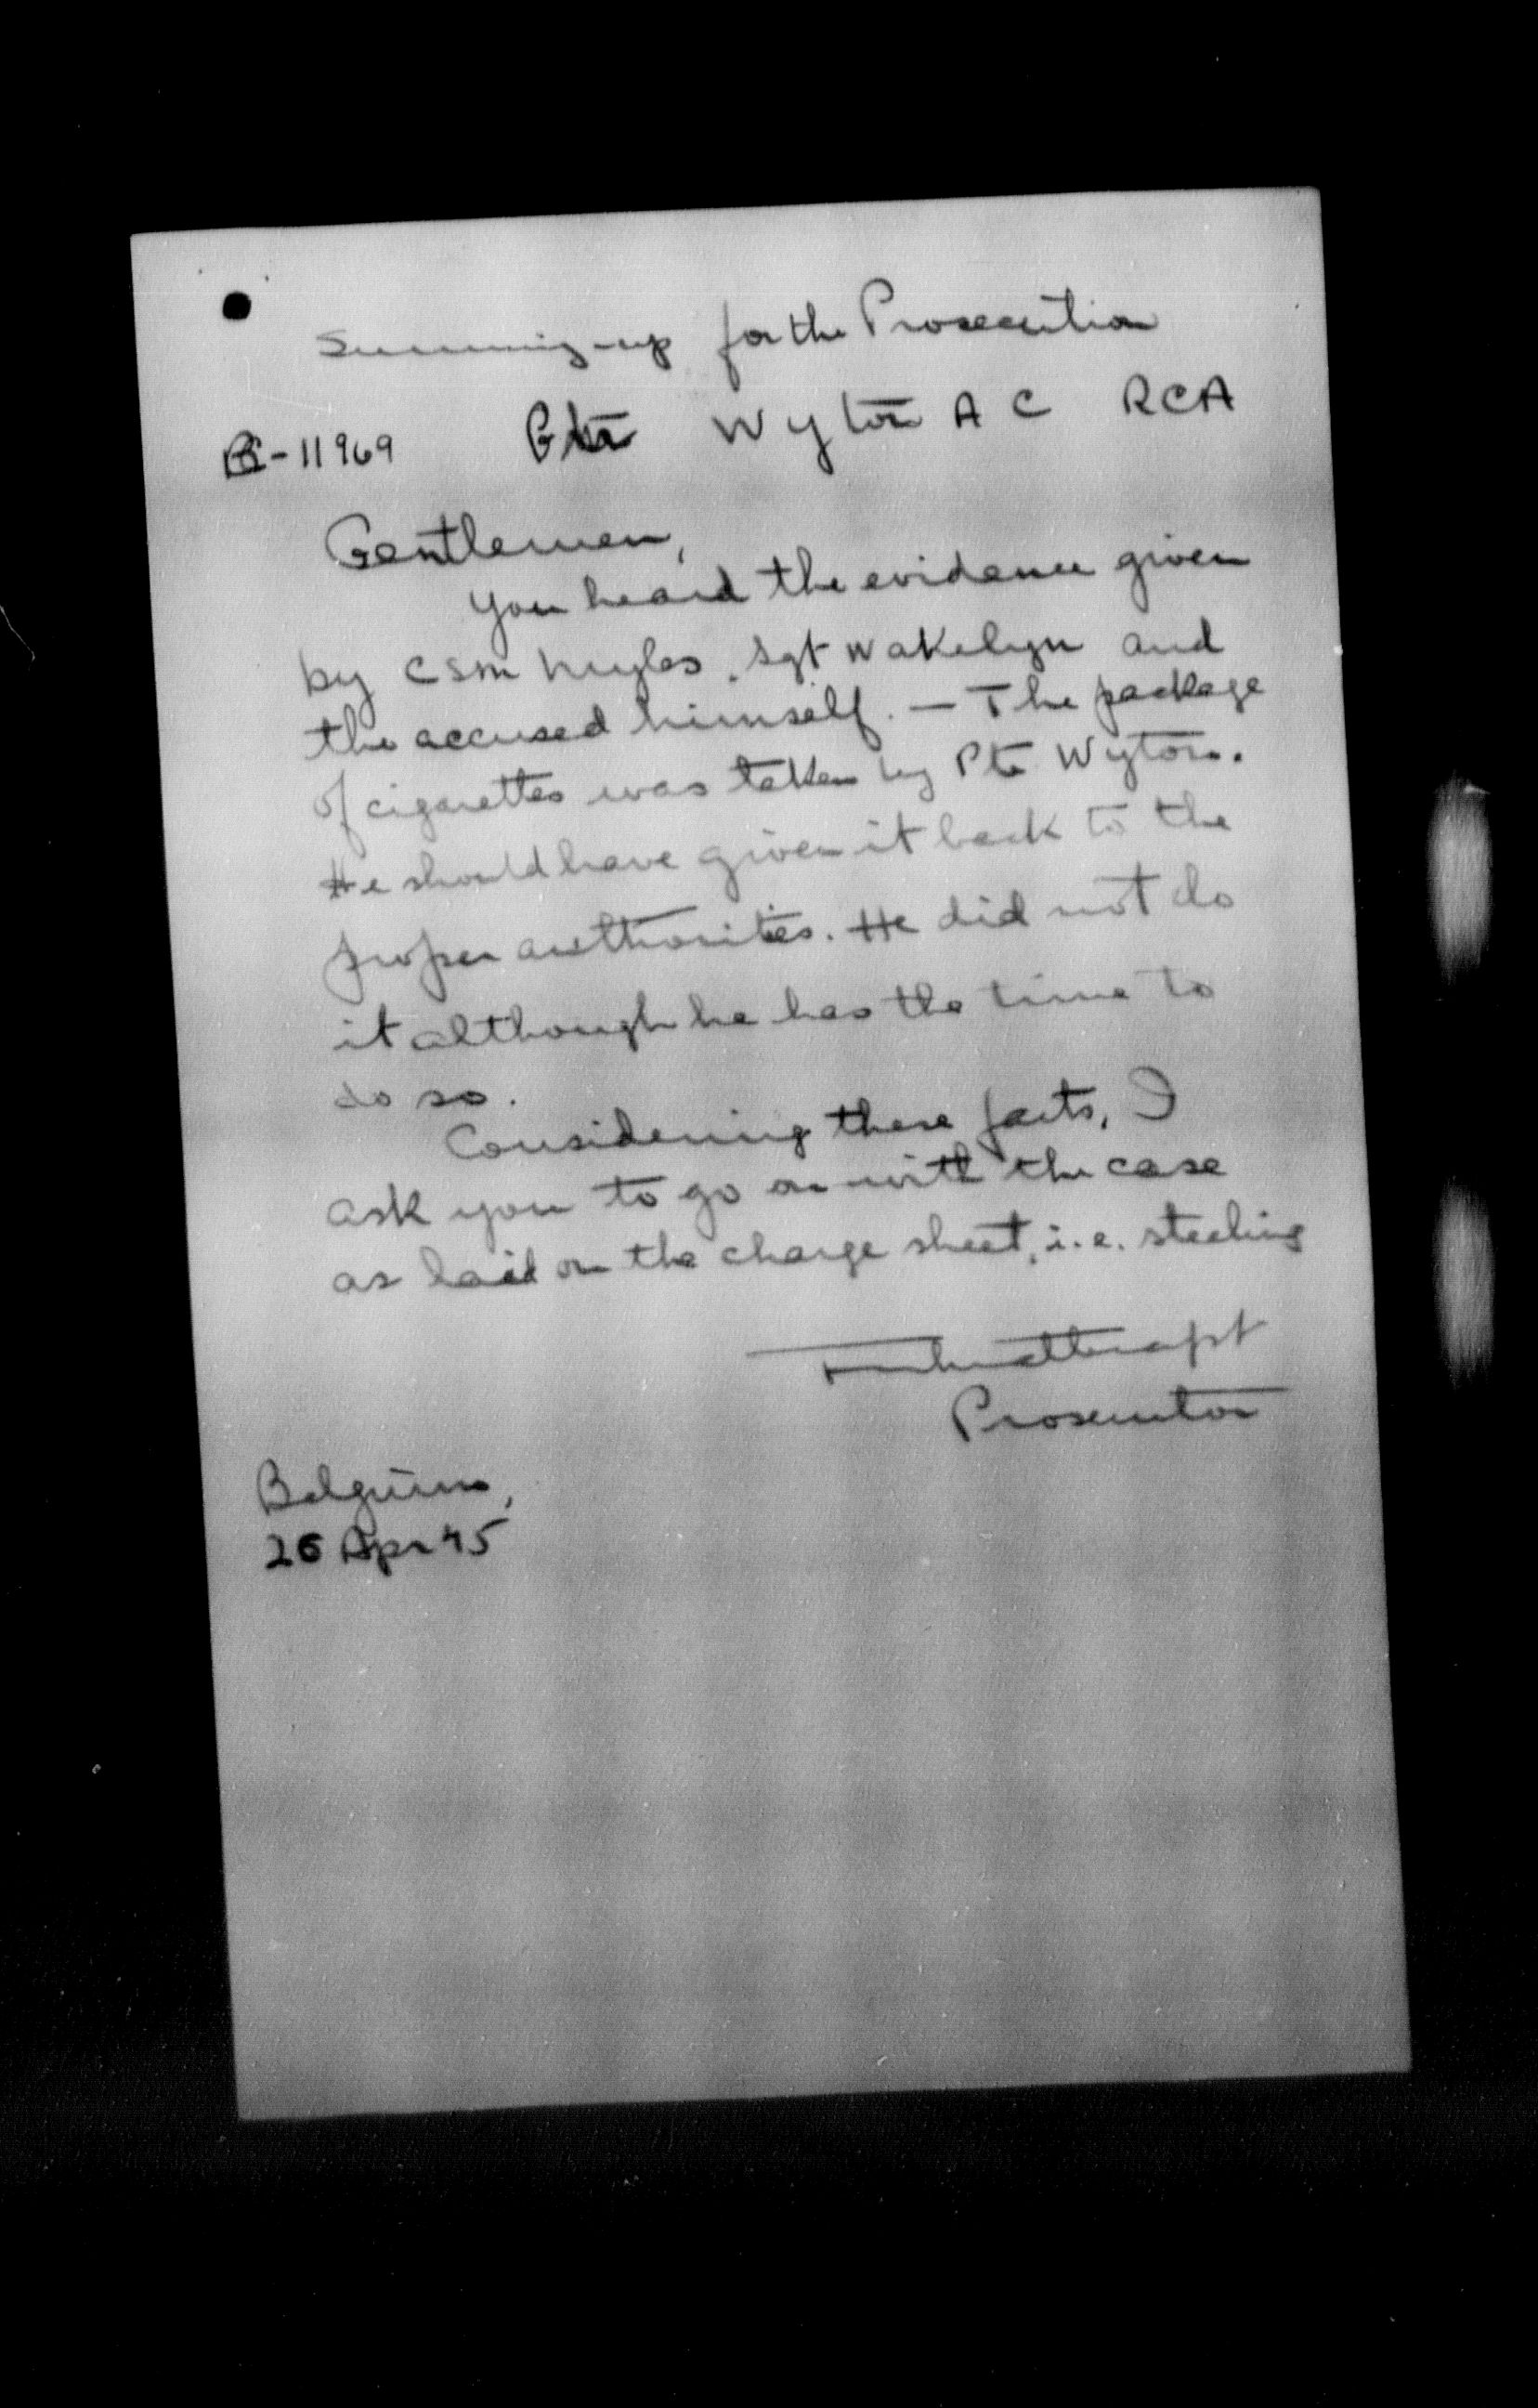 Summing-up for the Prosecution
-11969 Wyton A C RCA
Gentlemen,
You heard the evidence given
by CSM Myles, Sgt Wakelyn and
the accused himself. — The package
of cigarettes was taken by Pte Wyton.
He should have given it back to the
proper authorities. He did not do
it although he has the time to
do so.
Considering these facts, I
ask you to go on with the case
as laid on the charge sheet, i.e. steeling
Prosecutor
Belgium,
26 Apr 45